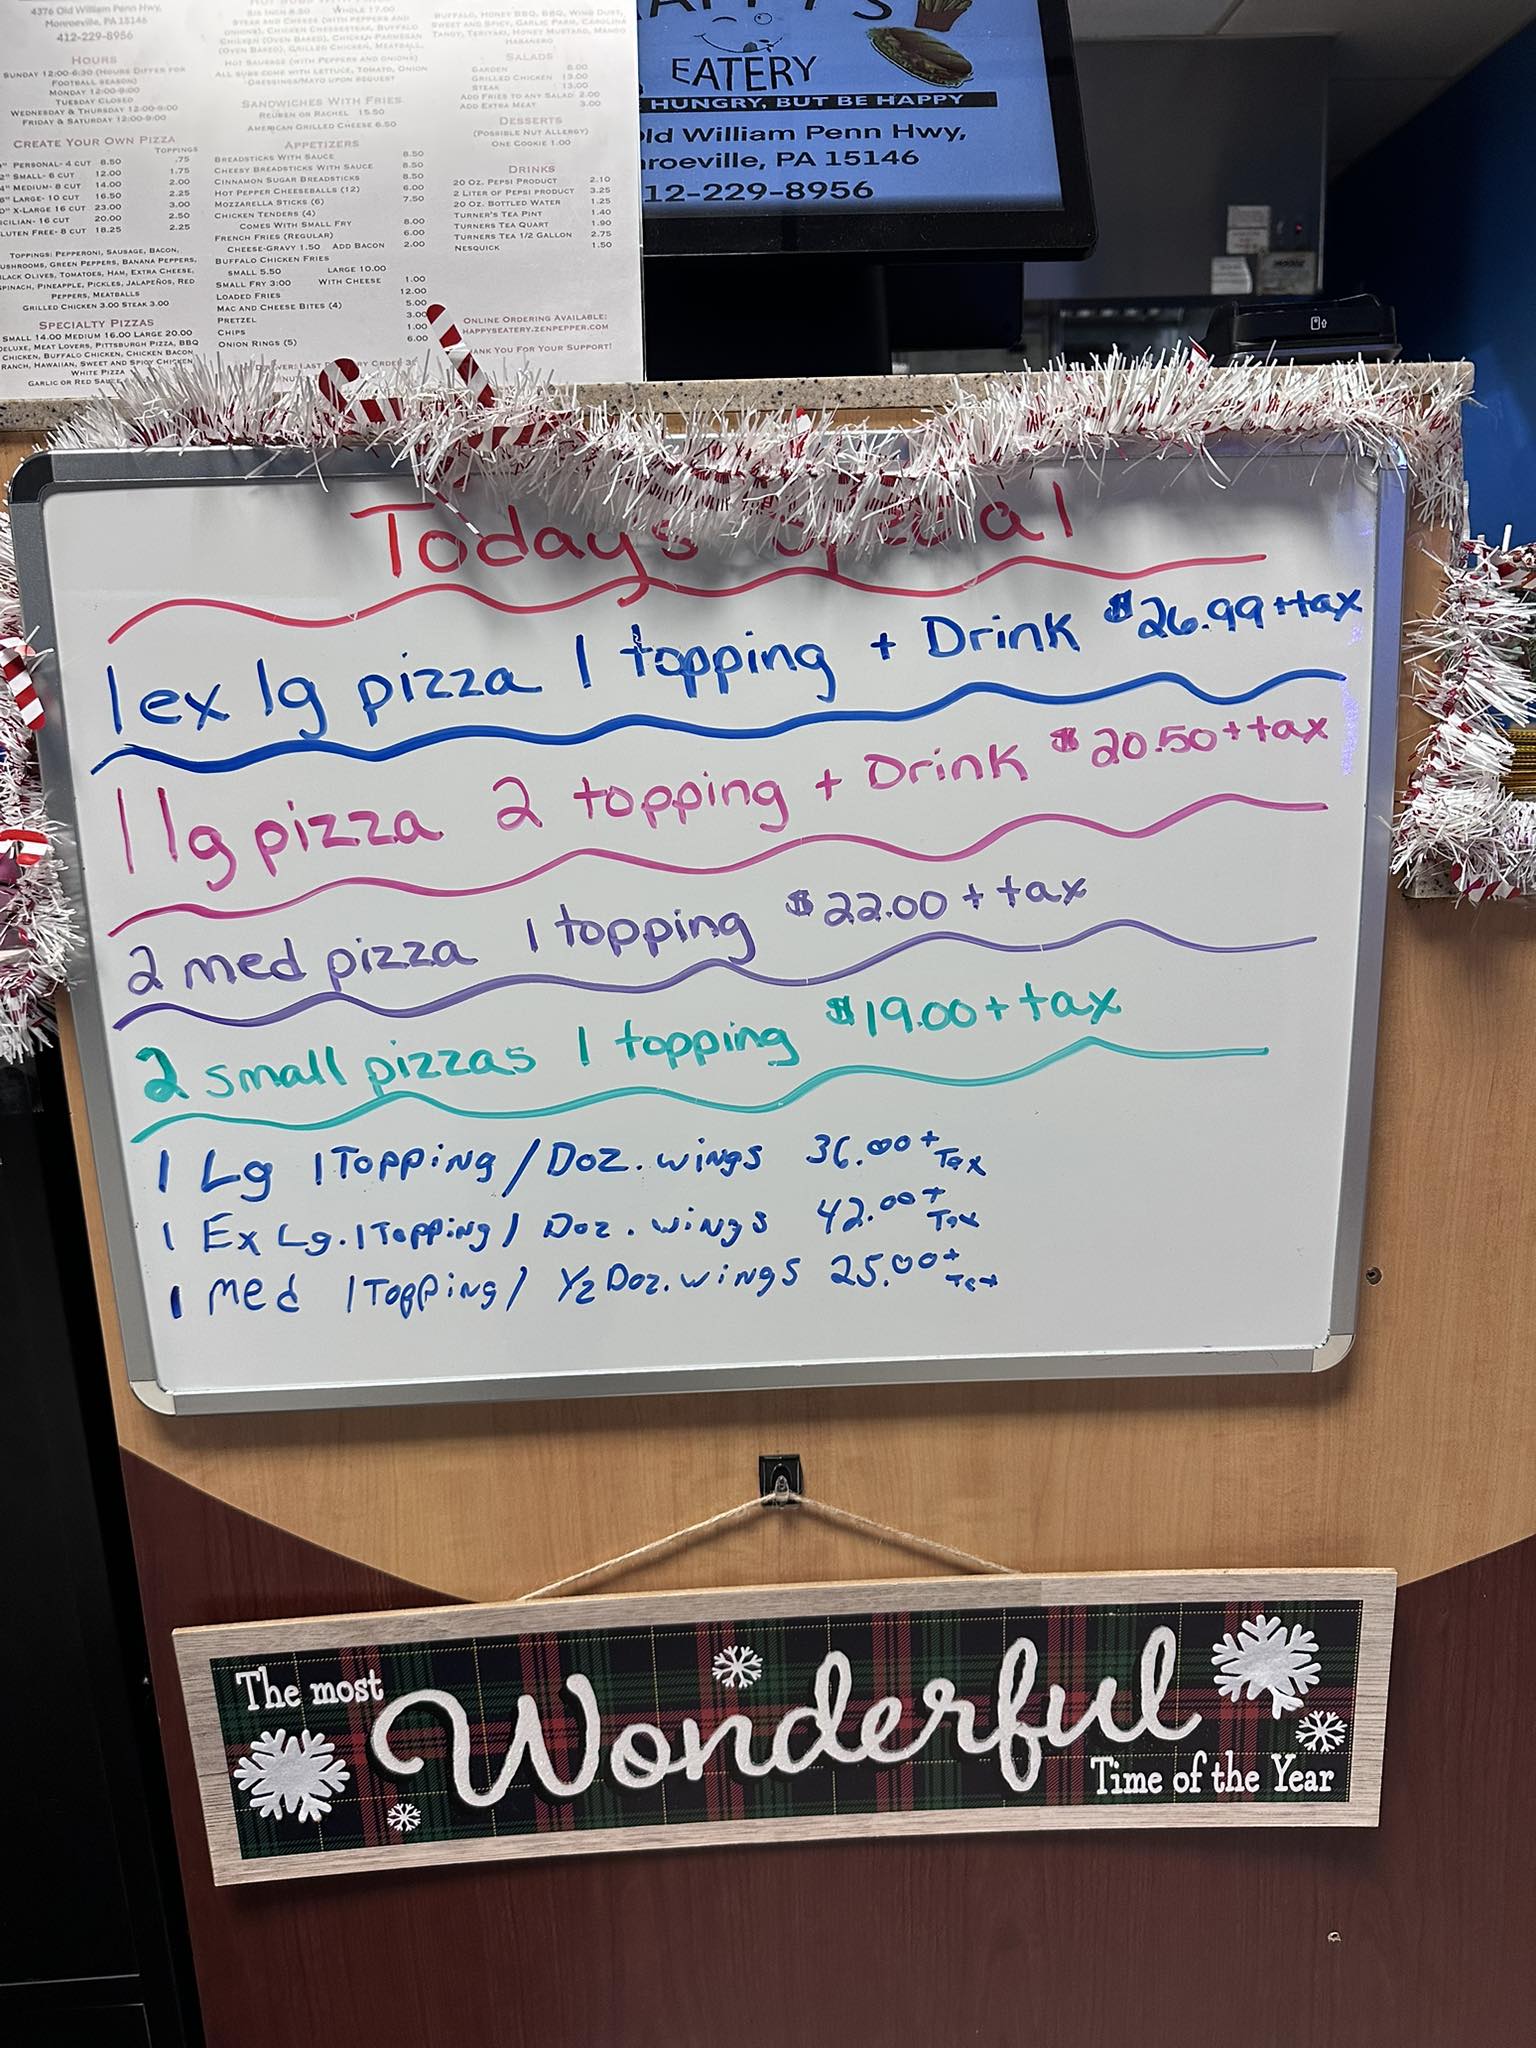 4376 Old William Penn Hwy,
Monroeville, PA 15146
412-229-8956
HOURS
SUNDAY 12:00-6:30 (HOURS DIFFER FOR
FOOTBALL SEASON)
MONDAY 12:00-9:00
TUESDAY CLOSED
WEDNESDAY & THURSDAY 12:00-9:00
FRIDAY & SATURDAY 12:00-9:00
CREATE YOUR OWN PIZZA
TOPPINGS
PERSONAL- 4 CUT 8.50 .75
SMALL- 6 CUT 12.00 1.75
MEDIUM- 8 CUT 14.00 2.00
LARGE- 10 CUT 16.50 2.25
X-LARGE 16 CUT 23.00 3.00
CILIAN- 16 CUT 20.00 2.50
LUTEN FREE- 8 CUT 18.25 2.25
TOPPINGS: PEPPERONI, SAUSAGE, BACON,
USHROOMS, GREEN PEPPERS, BANANA PEPPERS,
LACK OLIVES, TOMATOES, HAM, EXTRA CHEESE,
PINACH, PINEAPPLE, PICKLES, JALAPEÑOS, RED
PEPPERS, MEATBALLS
GRILLED CHICKEN 3.00 STEAK 3.00
SPECIALTY PIZZAS
SMALL 14.00 MEDIUM 16.00 LARGE 20.00
DELUXE, MEAT LOVERS, PITTSBURGH PIZZA, BBQ
CHICKEN, BUFFALO CHICKEN, CHICKEN BACON
RANCH, HAWAIIAN, SWEET AND SPICY CHICKEN
WHITE PIZZA
GARLIC OR RED
STEAK AND CHEESE (WITH PEPPERS AND
ONIONS), CHICKEN CHEESESTEAK, BUFFALO
CHICKEN (OVEN BAKED), CHICKEN PARMESAN
(OVEN BAKED), GRILLED CHICKEN, MEATBALL,
HOT SAUSAGE (WITH PEPPERS AND ONIONS)
ALL SUBS COME WITH LETTUCE, TOMATO, ONION
DRESSINGS/MAYO UPON REQUEST
SANDWICHES WITH FRIES
REUBEN OR RACHEL 15.50
AMERICAN GRILLED CHEESE 6.50
APPETIZERS
BREADSTICKS WITH SAUCE 8.50
CHEESY BREADSTICKS WITH SAUCE 8.50
CINNAMON SUGAR BREADSTICKS 8.50
HOT PEPPER CHEESEBALLS (12) 6.00
MOZZARELLA STICKS (6) 7.50
CHICKEN TENDERS (4)
COMES WITH SMALL FRY 8.00
FRENCH FRIES (REGULAR) 6.00
CHEESE-GRAVY 1.50 ADD BACON 2.00
BUFFALO CHICKEN FRIES
SMALL 5.50 LARGE 10.00
SMALL FRY 3:00 WITH CHEESE 1.00
LOADED FRIES 12.00
MAC AND CHEESE BITES (4) 5.00
PRETZEL 3.00
CHIPS 1.00
ONION RINGS (5) 6.00
BUFFALO, HONEY BBQ, BBQ, WING DUST,
SWEET AND SPICY, GARLIC PARM, CAROLINA
TANGY, TERIYAKI, HONEY MUSTARD, MANGO
HABANERO
SALADS
GARDEN 8.00
GRILLED CHICKEN 13.00
STEAK 13.00
ADD FRIES TO ANY SALAD 2.00
ADD EXTRA MEAT 3.00
DESSERTS
(POSSIBLE NUT ALLERGY)
ONE COOKIE 1.00
DRINKS
20 OZ. PEPSI PRODUCT 2.10
2 LITER OF PEPSI PRODUCT 3.25
20 OZ. BOTTLED WATER 1.25
TURNER'S TEA PINT 1.40
TURNER'S TEA QUART 1.90
TURNERS TEA 1/2 GALLON 2.75
NESQUICK 1.50
ONLINE ORDERING AVAILABLE:
HAPPYSEATERY.ZENPEPPER.COM
ANK YOU FOR YOUR SUPPORT!
APPY'S
EATERY
HUNGRY, BUT BE HAPPY
Old William Penn Hwy,
nroeville, PA 15146
12-229-8956
Todays Special
1 ex lg pizza 1 topping + Drink $26.99+tax
1 lg pizza 2 topping + Drink $20.50+tax
2 med pizza 1 topping $22.00 + tax
2 small pizzas 1 topping $19.00+tax
1 Lg 1 Topping/Doz. wings 36.00+Tax
1 Ex Lg. 1 Topping/ Doz. wings 42.00+Tax
1 med 1 Topping/ 1/2 Doz. wings 25.00+Tax
The most
Wonderful
Time of the Year